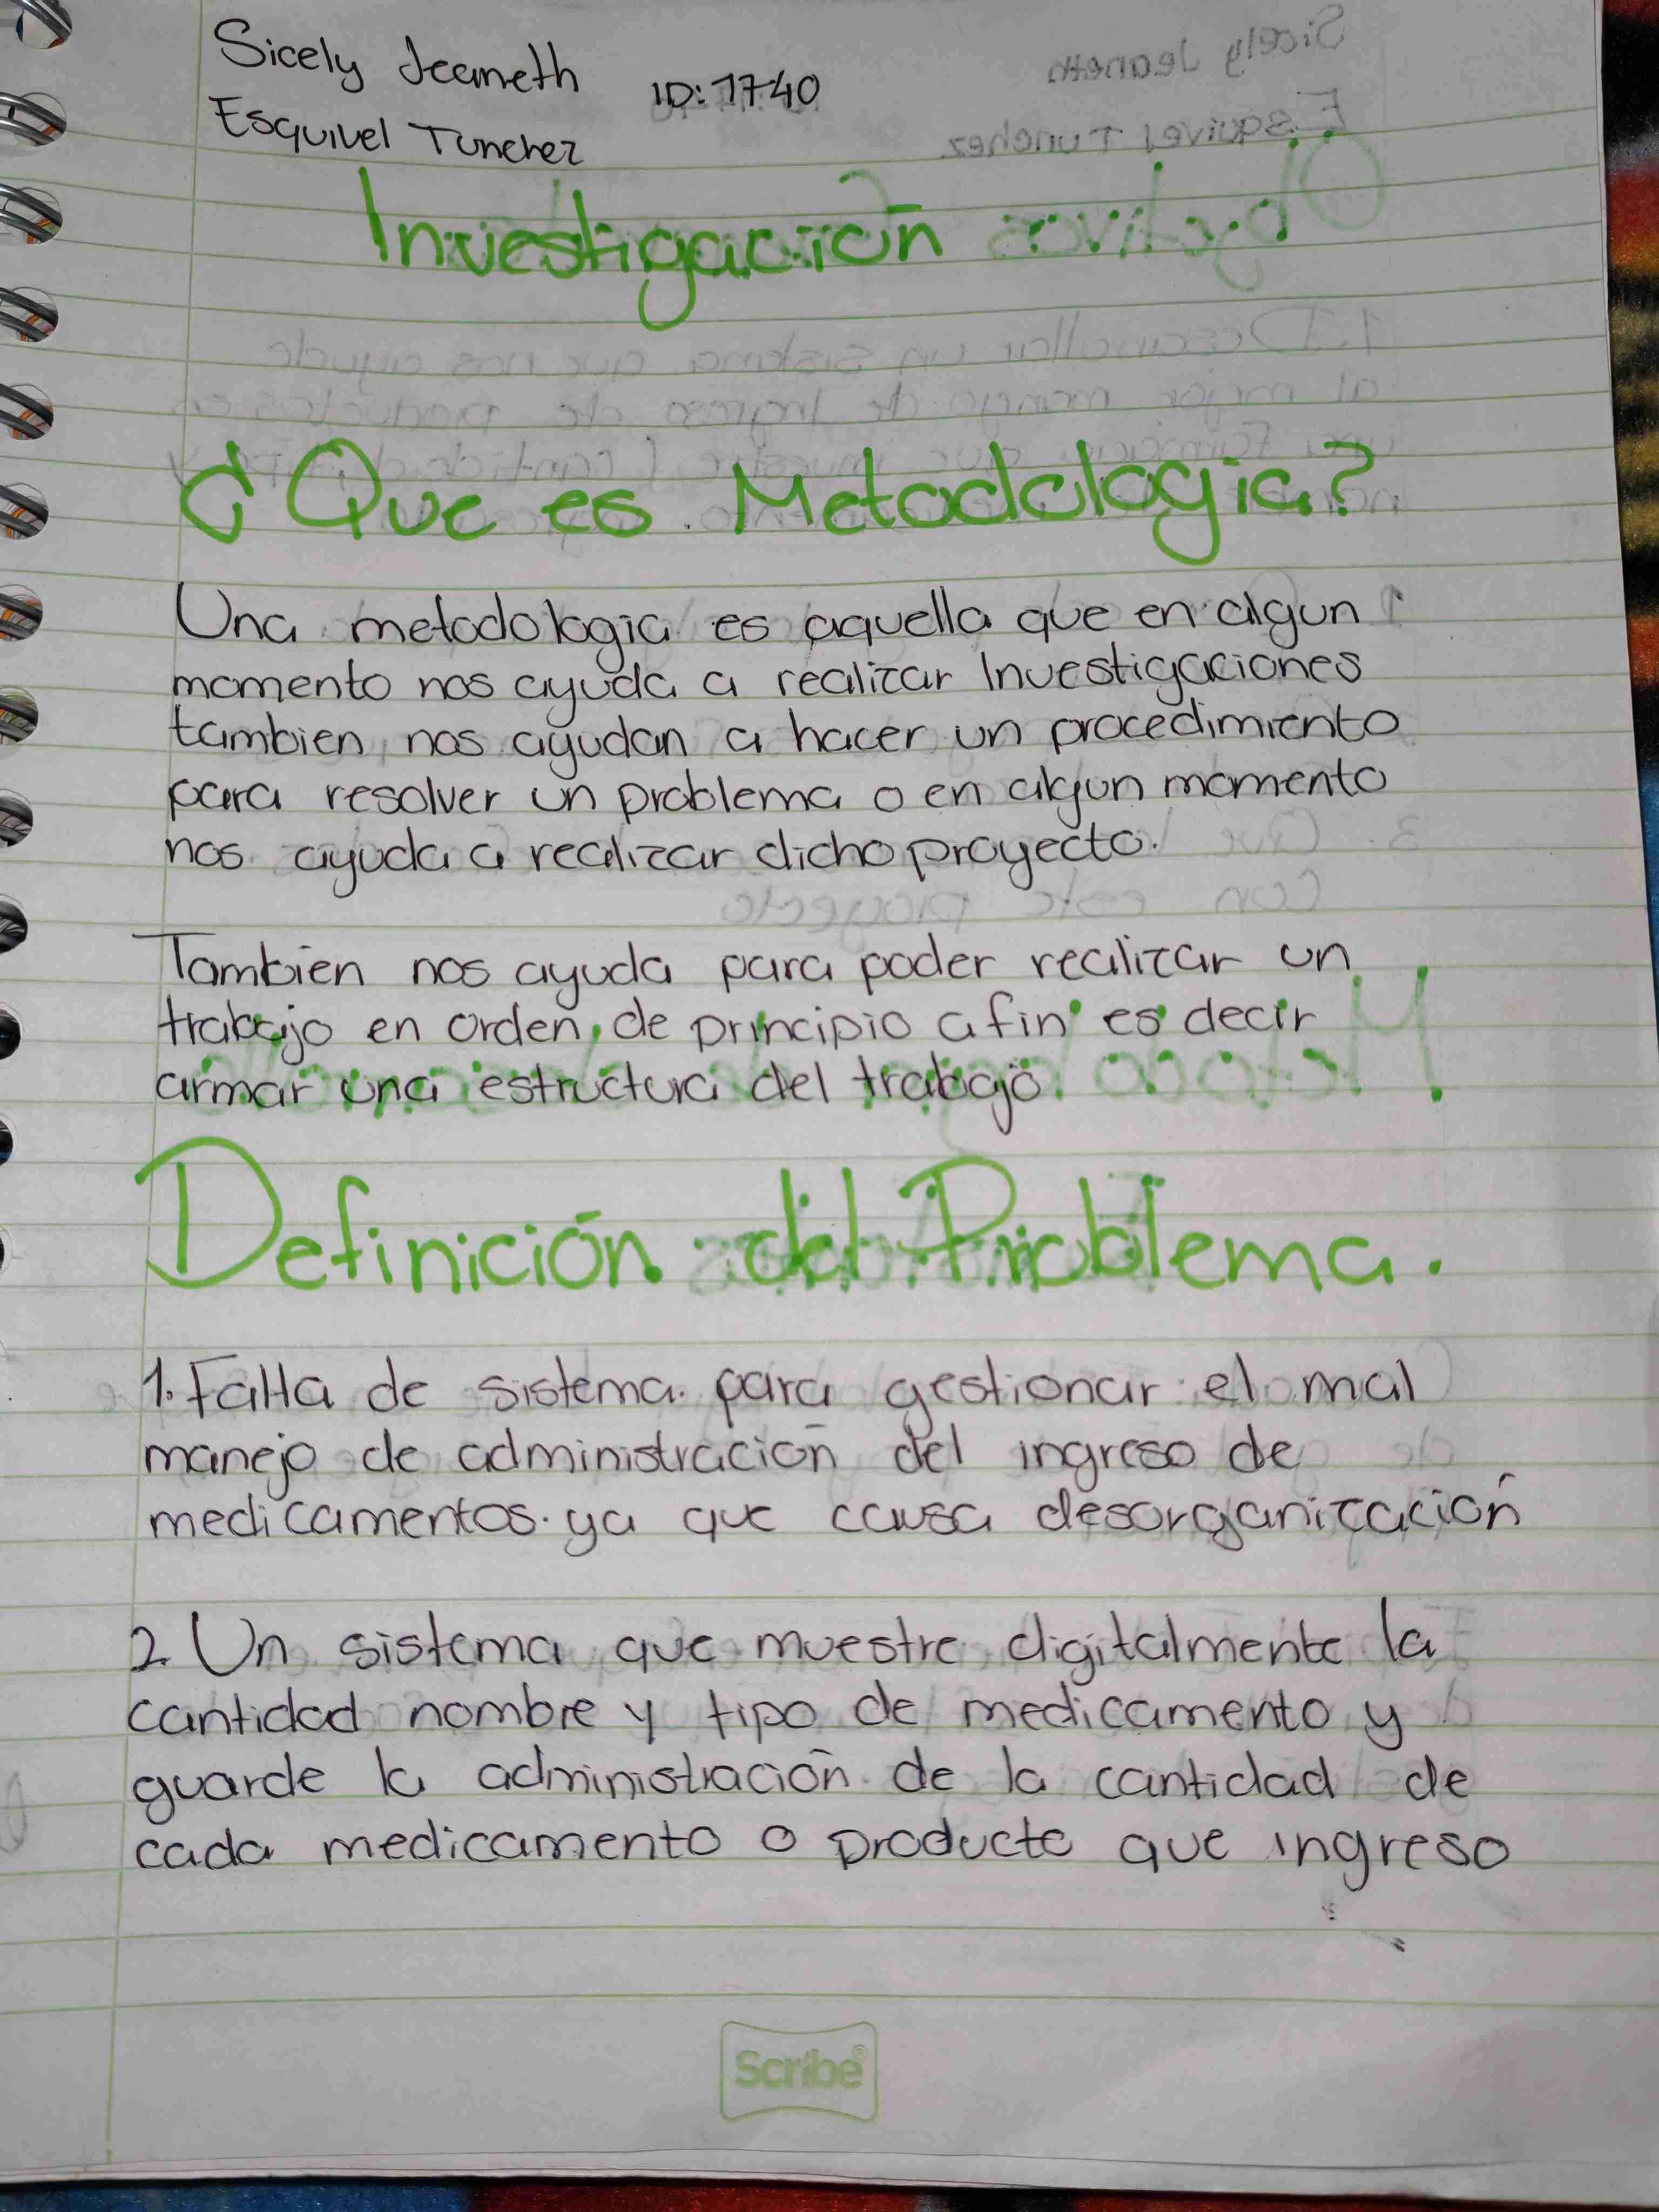 Sicely Jeaneth
ID: 1740
Esquivel Tunchez
Investigación
¿Que es Metodologia?
Una metodologia es aquella que en algun
momento nos ayuda a realizar Investigaciones
tambien nos ayudan a hacer un procedimiento
para resolver un problema o en algun momento
nos ayuda a realizar dicho proyecto.
Tambien nos ayuda para poder realizar un
trabajo en orden, de principio a fin es decir
armar una estructura del trabajo.
Definición del Problema.
1. Falta de sistema para gestionar el mal
manejo de administración del ingreso de
medicamentos. ya que causa desorganización
2. Un sistema que muestre digitalmente la
cantidad nombre y tipo de medicamento y
guarde la administración de la cantidad de
cada medicamento o producto que ingreso
Scribe®